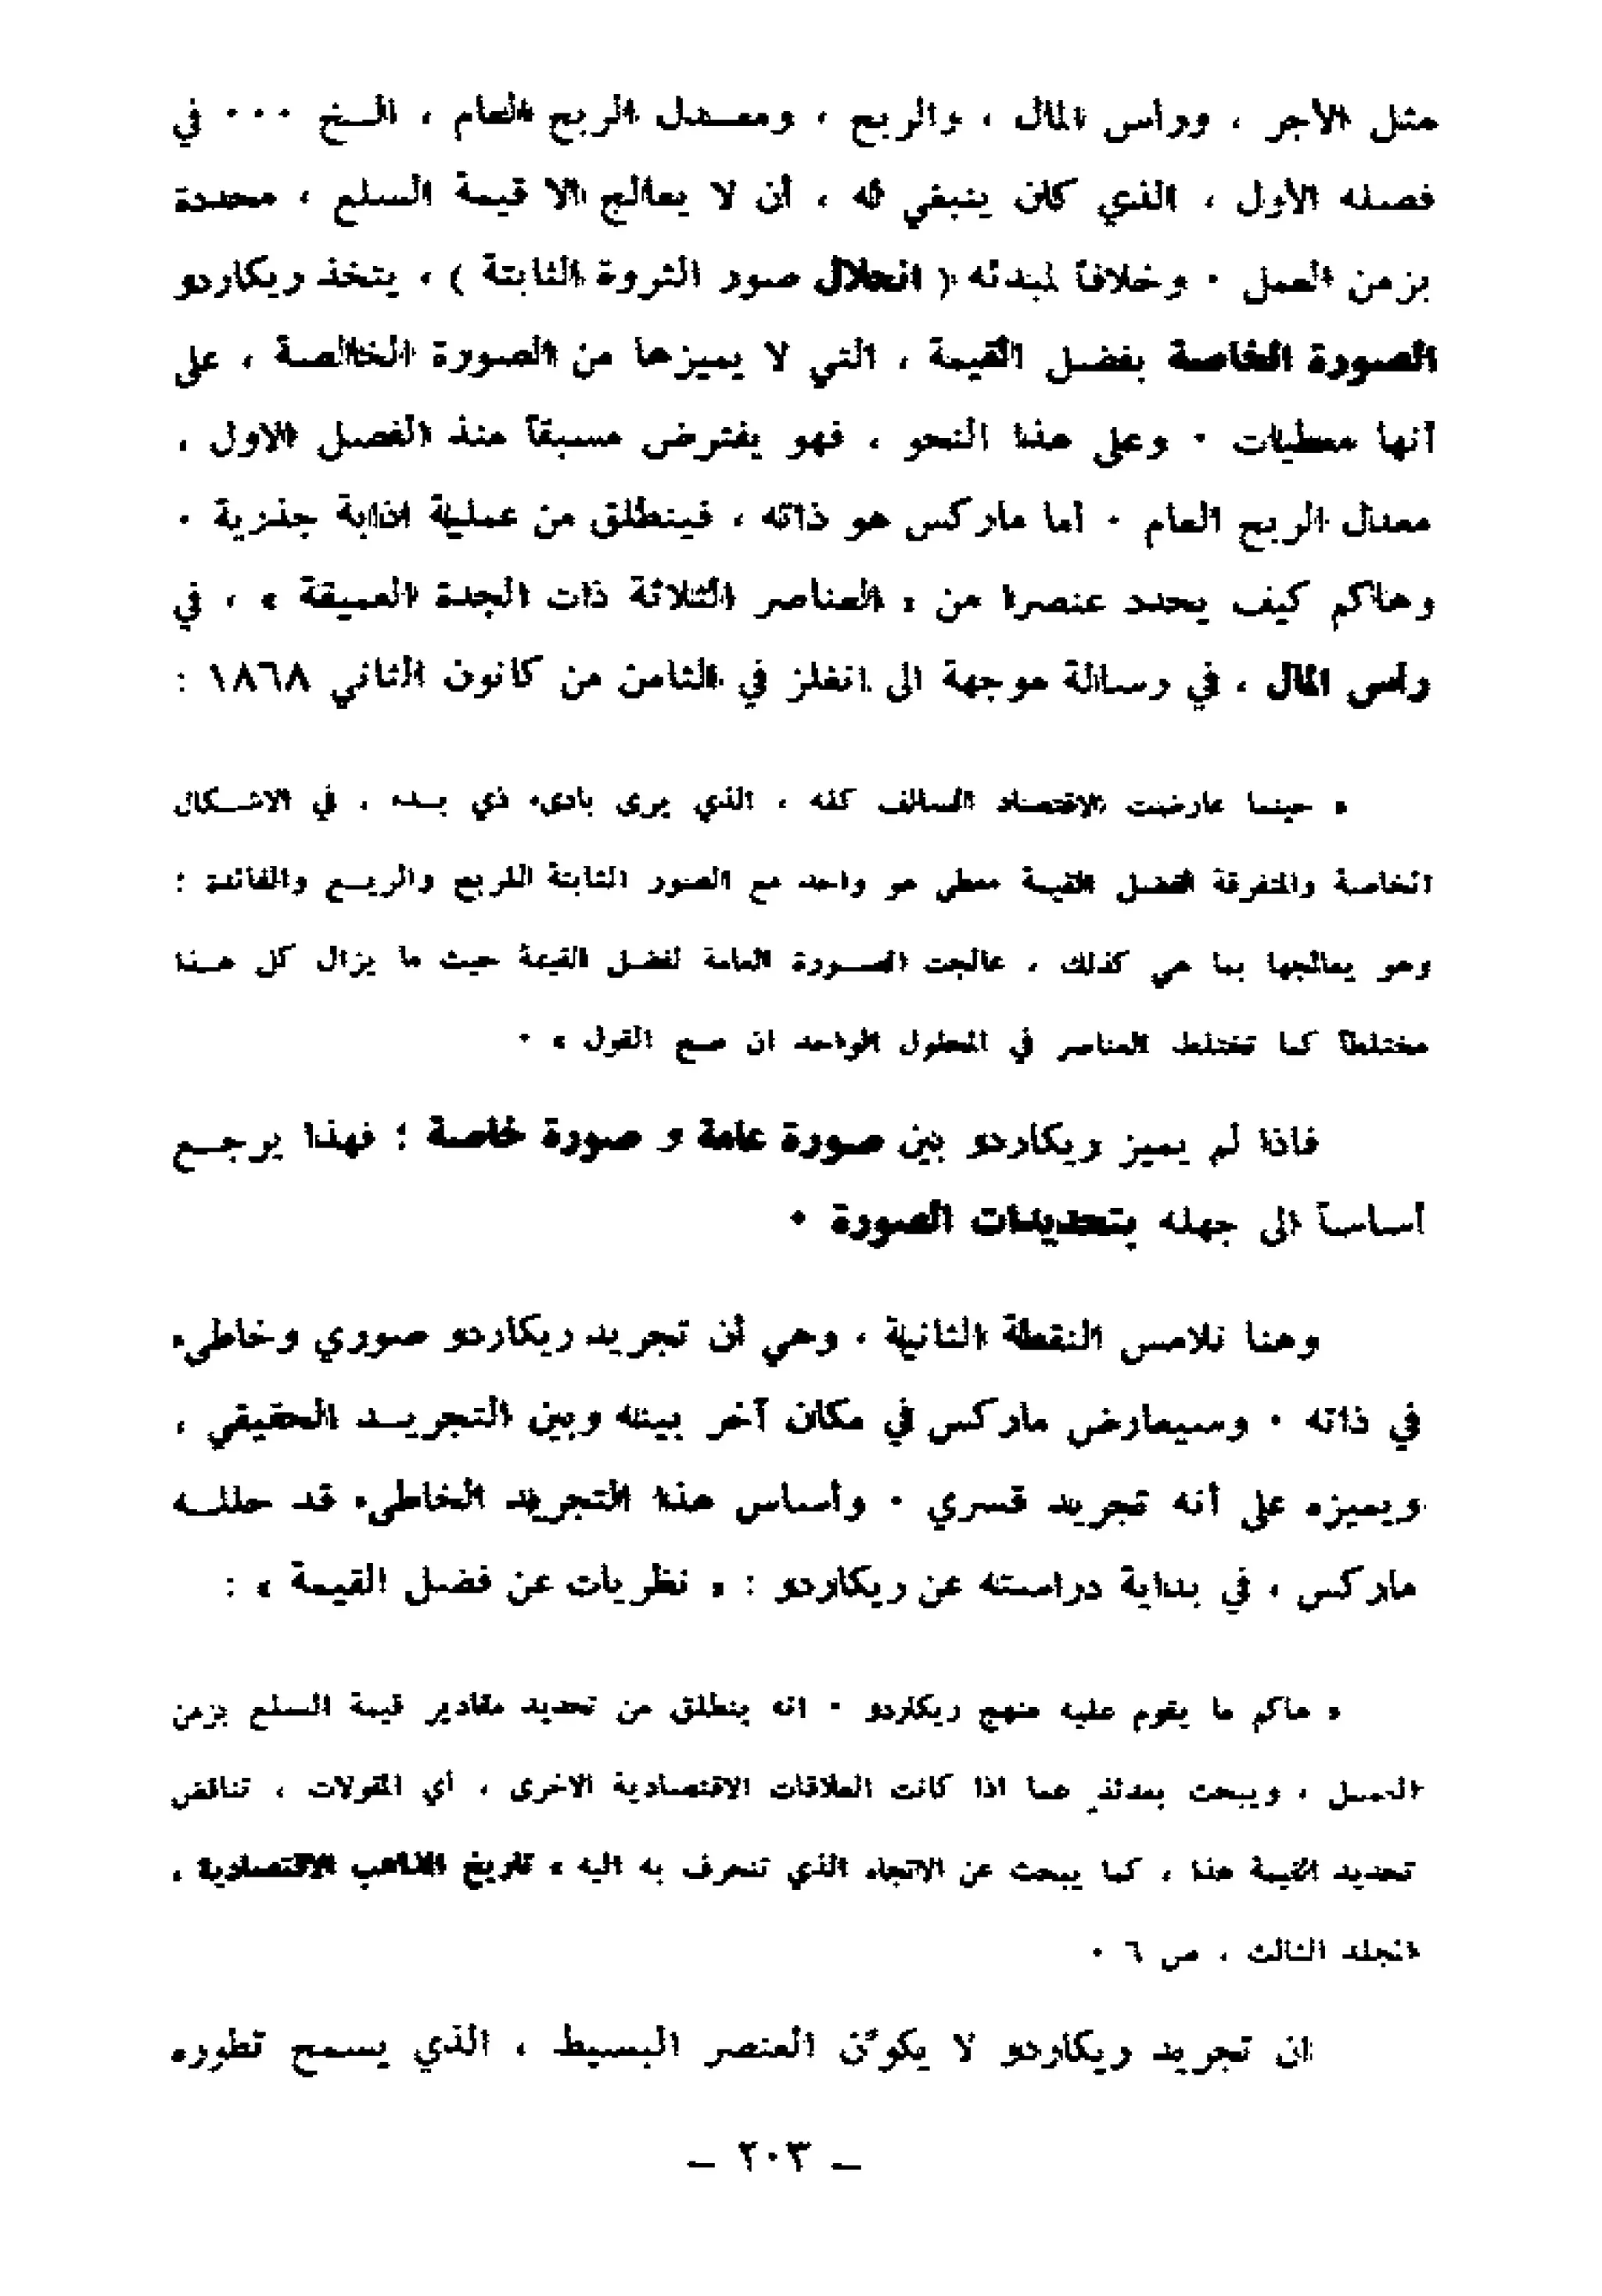 مثل الأجر ، ورأس المال ، والربح ، ومعدل الربح العام ، الخ ٠٠٠ في
فصله الأول ، الذي كان ينبغي له ، أن لا يعالج الا قيمة السلع ، محددة
بزمن العمل ٠ وخلافاً لمبدئه ( انحلال صور الثروة الثابتة ) ، يتخذ ريكاردو
الصورة الخاصة بفضل القيمة ، التي لا يميزها من الصورة الخالصة ، على
أنها معطيات ٠ وعلى هذا النحو ، فهو يفترض مسبقاً منذ الفصل الاول ،
معدل الربح العام ٠ أما ماركس هو ذاته ، فينطلق من عملية اذابة جذرية ٠
وهاكم كيف يحدد عنصرا من « العناصر الثلاثة ذات الجدة العميقة » ، في
رأس المال ، في رسالة موجهة الى انغلز في الثامن من كانون الثاني ١٨٦٨ :
« حينما عارضت الاقتصاد السالف كله ، الذي يرى بادىء ذي بدء ، في الاشكال
الخاصة والمتفرقة لفضل القيمة معطى هو واحد مع الصور الثابتة للربح والريع والفائدة ؛
وهو يعالجها بما هي كذلك ، عالجت الصورة العامة لفضل القيمة حيث ما يزال كل هذا
مختلطاً كما تختلط العناصر في المحلول الواحد ان صح القول » ٠
فاذا لم يميز ريكاردو بين صورة عامة و صورة خاصة ؛ فهذا يرجع
أساساً الى جهله بتحديدات الصورة ٠
وهنا نلامس النقطة الثانية ، وهي أن تجريد ريكاردو صوري وخاطىء
في ذاته ٠ وسيعارض ماركس في مكان آخر بينه وبين التجريد الحقيقي ،
ويميزه على أنه تجريد قسري ٠ وأساس هذا التجريد الخاطىء قد حلله
ماركس ، في بداية دراسته عن ريكاردو : « نظريات عن فضل القيمة » :
« هاكم ما يقوم عليه منهج ريكاردو ٠ انه ينطلق من تحديد مقادير قيمة السلع بزمن
العمل ، ويبحث بعدئذٍ عما اذا كانت العلاقات الاقتصادية الاخرى ، أي المقولات ، تناقض
تحديد القيمة هذا ، كما يبحث عن الاتجاه الذي تنحرف به اليه » تاريخ المذاهب الاقتصادية ،
المجلد الثالث ، ص ٦ ٠
ان تجريد ريكاردو لا يكوّن العنصر البسيط ، الذي يسمح تطوره
– ٢٠٣ –